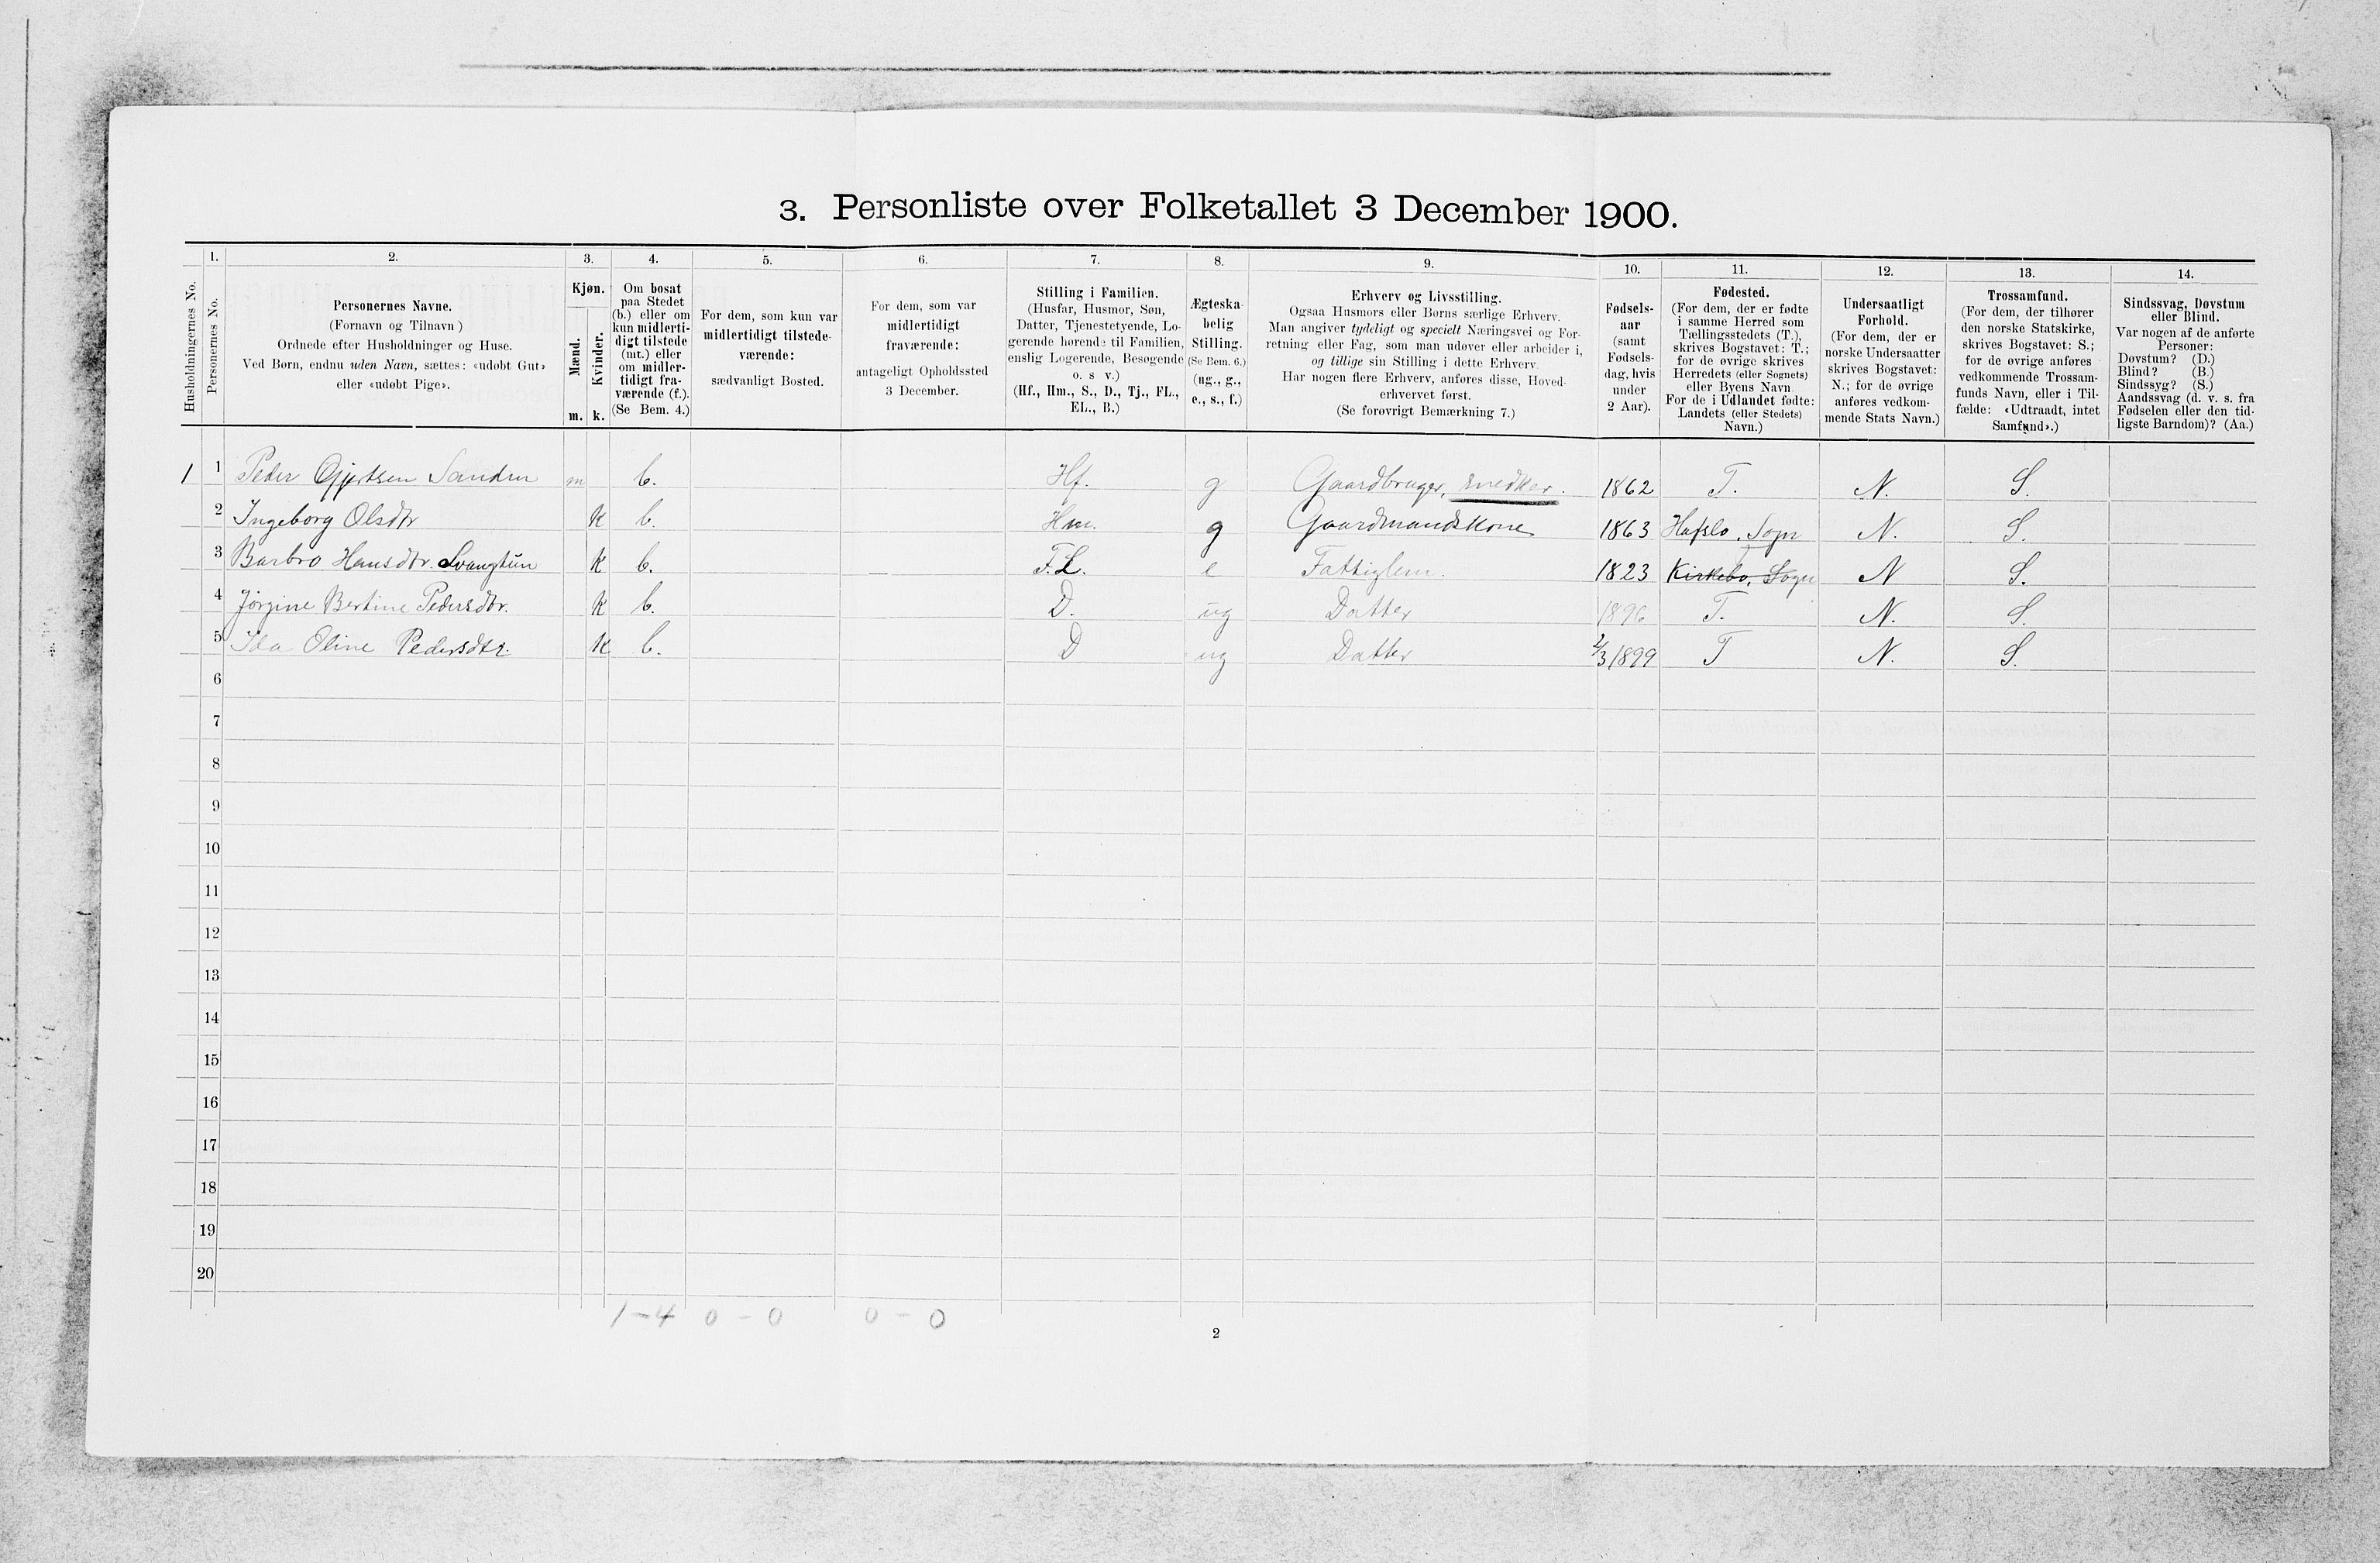 3. Personliste over Folketallet 3 December 1900.
Husholdningernes No.
1.
Personernes No.
2.
Personernes Navne.
(Fornavn og Tilnavn)
Ordnede efter Husholdninger og Huse.
Ved Børn, endnu uden Navn, sættes: «udøbt Gut»
eller «udøbt Pige».
3.
Kjøn.
Mænd.
m.
Kvinder.
k.
4.
Om bosat
paa Stedet
(b.) eller om
kun midlerti-
digt tilstede
(mt.) eller
om midler-
tidigt fra-
værende (f.).
(Se Bem. 4.)
5.
For dem, som kun var
midlertidigt tilstede-
værende:
sædvanligt Bosted.
6.
For dem, som var
midlertidigt
fraværende:
antageligt Opholdssted
3 December.
7.
Stilling i Familien.
(Husfar, Husmor, Søn,
Datter, Tjenestetyende, Lo-
gerende hørende til Familien,
enslig Logerende, Besøgende
o. s v.)
(Hf., Hm., S., D., Tj., FL.,
EL., B.)
8.
Ægteska-
belig
Stilling.
(Se Bem. 6.)
(ug., g.,
e., s., f.)
9.
Erhverv og Livsstilling.
Ogsaa Husmors eller Børns særlige Erhverv.
Man angiver tydeligt og specielt Næringsvei og For-
retning eller Fag, som man udøver eller arbeider i,
og tillige sin Stilling i dette Erhverv.
Har nogen flere Erhverv, anføres disse, Hoved-
erhvervet først.
(Se forøvrigt Bemærkning 7.)
10.
Fødsels-
aar
(samt
Fødsels-
dag, hvis
under
2 Aar).
11.
Fødested.
(For dem, der er fødte
i samme Herred som
Tællingsstedets (T.),
skrives Bogstavet: T.;
for de øvrige skrives
Herredets (eller Sognets)
eller Byens Navn.
For de i Udlandet fødte:
Landets (eller Stedets)
Navn.)
12.
Undersaatligt
Forhold.
(For dem, der er
norske Undersaatter
skrives Bogstavet:
N.; for de øvrige
anføres vedkom-
mende Stats Navn.)
13.
Trossamfund.
(For dem, der tilhører
den norske Statskirke,
skrives Bogstavet: S.;
for de øvrige anføres
vedkommende Trossam-
funds Navn, eller i Til-
fælde: «Udtraadt, intet
Samfund».)
14.
Sindssvag, Døvstum
eller Blind.
Var nogen af de anførte
Personer:
Døvstum? (D.)
Blind? (B.)
Sindssyg? (S.)
Aandssvag (d. v. s. fra
Fødselen eller den tid-
ligste Barndom)? (Aa.)
1 1 Peder Gjertsen m b. Hf. g Gaardbruger, snedker. 1862 T. N. S.
2 Ingeborg Olsdtr K b. Hm. g Gaardmandskone 1863 Hafslo, Sogn N. S.
3 Barbro Hansdtr. K b. F.L. e Fattiglem. 1823 Kirkebø, Sogn N S.
4 Jørgine Bertine Pedersdtr. K b. D. ug Datter 1896 T. N. S.
5 Ida Oline Pedersdtr. K b. D ug Datter 2/3 1899 T N. S.
6
7
8
9
10
11
12
13
14
15
16
17
18
19
20
1-4 0-0 0-0
2